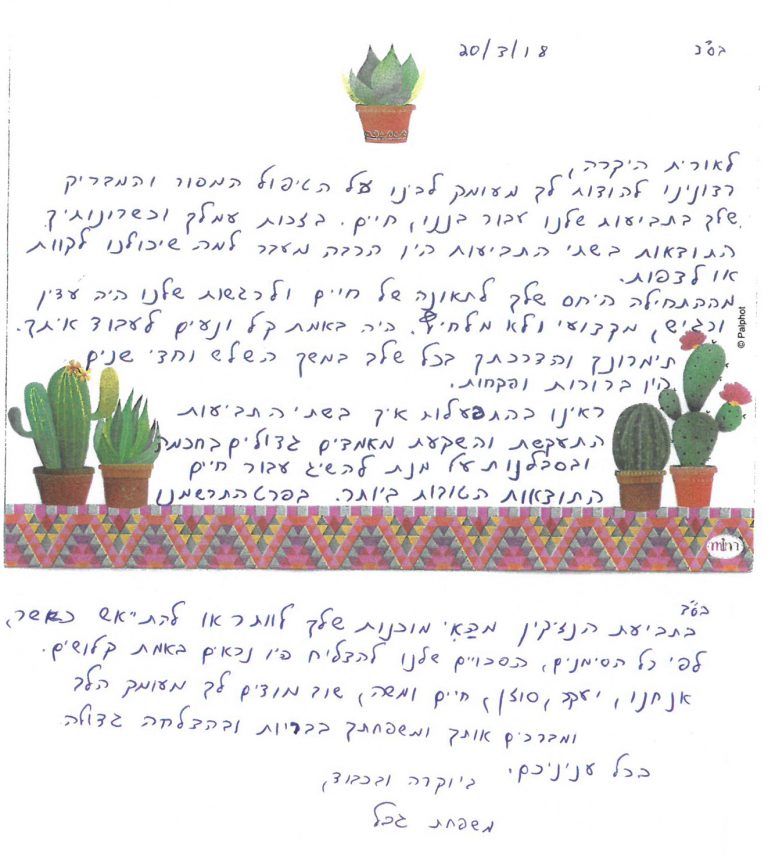 בס"ד
20/3/18
לאורית היקרה,
רצונינו להודות לך מעומק לבינו על הטיפול המסור והמבריק
שלך בתביעות שלנו עבור בננו, חיים. בזכות עמלך וכשרונותיך
התוצאות בשתי התביעות היו הרבה מעבר למה שיכולנו לקוות
או לצפות.
מההתחילה היחס שלך לתאונה של חיים ולרגשות שלנו היה עדין
ורגיש, מקצועי ולא מלחיץ. היה באמת קל ונעים לעבוד איתך.
תימרונך והדרכתך בכל שלב במשך השלש וחצי שנים
היו ברורות ופקחות.
ראינו בהתפעלות איך בשתי התביעות
התעקשת והשקעת מאמצים גדולים בחכמה
ובסבלנות על מנת להשיג עבור חיים
התוצאות הטובות ביותר. בפרט התרשמנו
© Palphot
בס"ד
בתביעת הנזיקין מהאי מוכנות שלך לוותר או להתייאש כאשר,
לפי כל הסימנים, הסכויים שלנו להצליח היו נראים באמת קלושים.
אנחנו, יעקב, סוזן, חיים ומשה, שוב מודים לך מעומק הלב
ומברכים אותך ומשפחתך בבריות ובהצלחה גדולה
בכל עניניכם.
ביוקרה ובכבוד,
משפחת